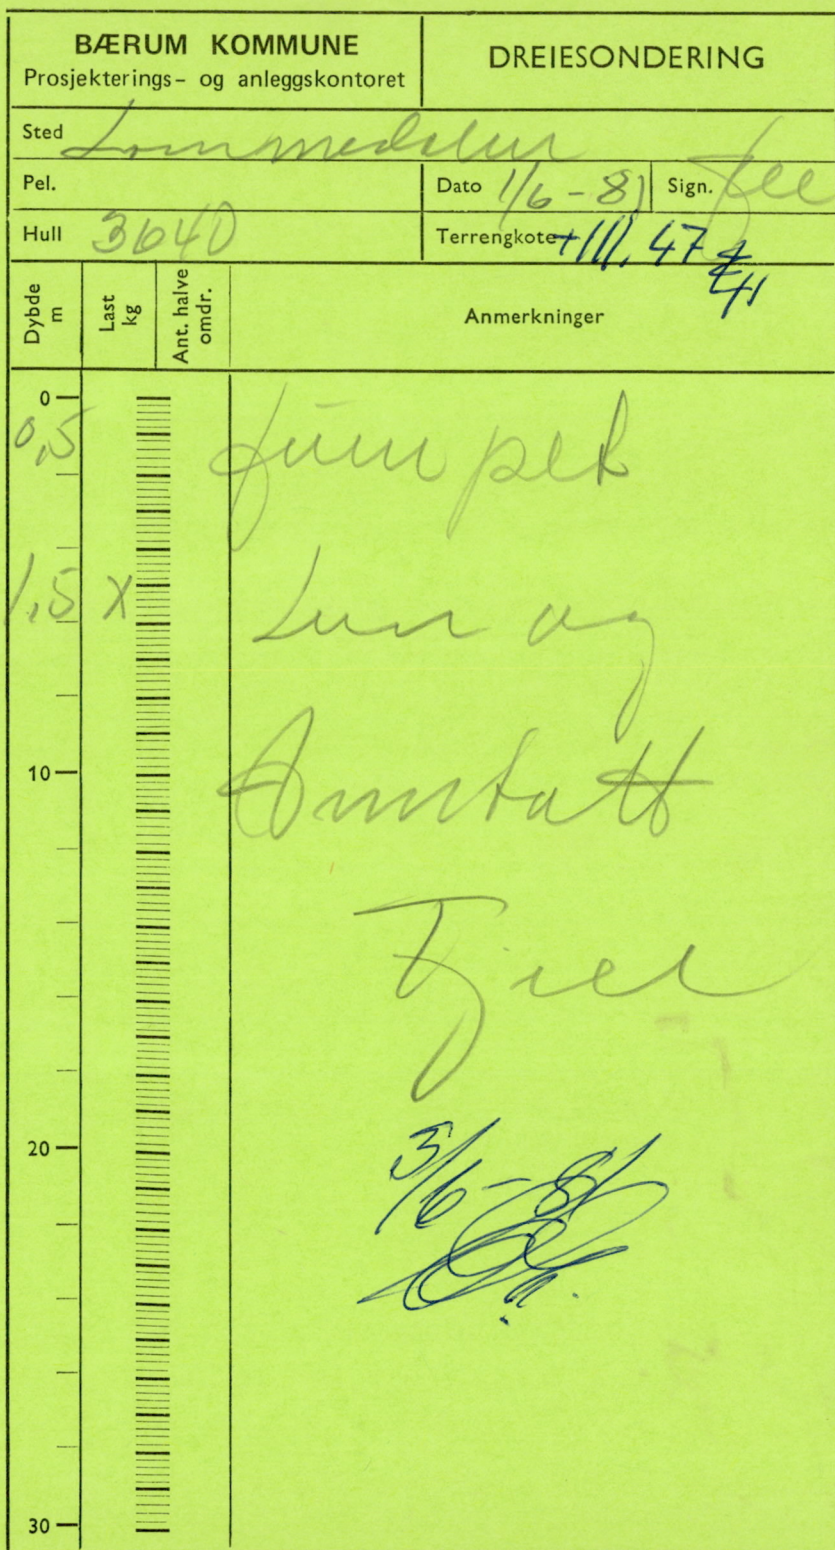 BÆRUM KOMMUNE
Prosjekterings- og anleggskontoret
DREIESONDERING
Sted Lommedalen
Pel.
Dato 1/6-81
Sign.
Hull 3640
Terrengkote +111,47
Dybde m
Last kg
Ant. halve omdr.
Anmerkninger
0
0,5
1,5 X
og
10
Antatt
Fjell
3/6-81
20
30